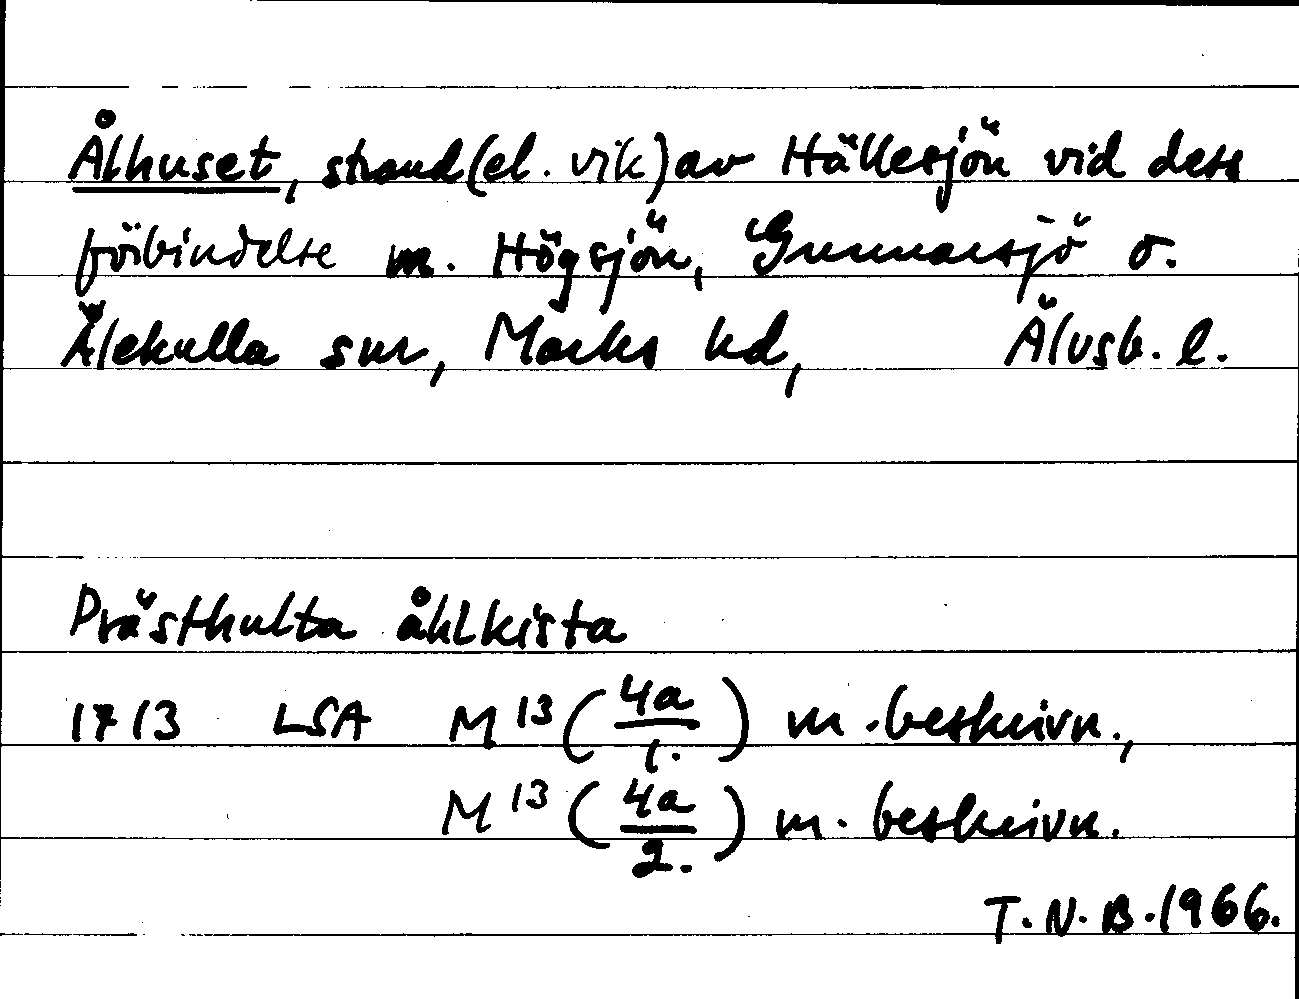 Ålhuset, strand (el. vik) av Hällesjön vid dess
förbindelse m. Högsjön, Gunnarsjö o.
Älekulla snr, Marks hd, Älvsb. l.
Prästhulta åhlkista
1713 LSA M 13 (4a/1.) m. beskrivn.,
M 13 (4a/2.) m. beskrivn.
T. N. B. 1966.